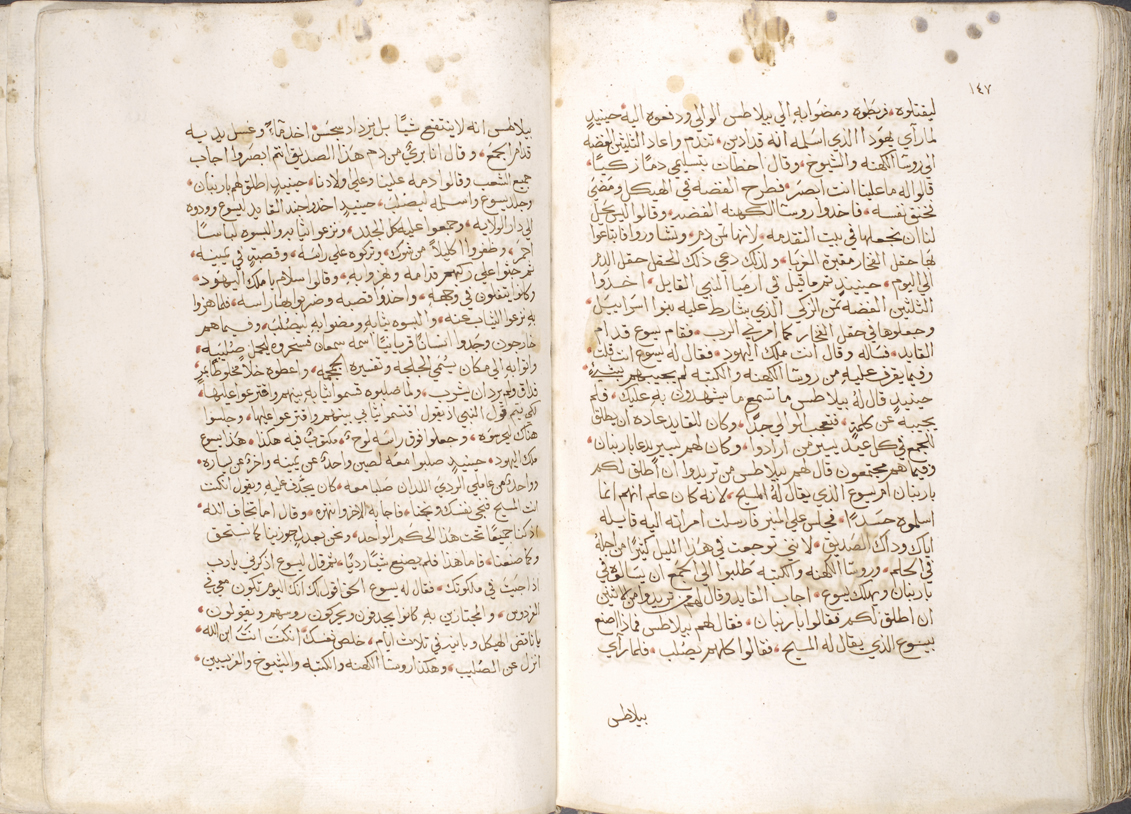 ١٤٧
ليقتلوه وربطوه ومضوا به الي بيلاطس الوالي ودفعوه اليه حينيدٍ
لما رأي يهودا الذي اسلمه انه قد ادين تندم واعاد الثلثين الفضه
الي روسا الكهنه والشيوخ وقال اخطات بتسليمي دمًا زكيًا
قالوا له ما علينا انت ابصر فطرح الفضه في الهيكل ومضي
فخنق نفسه فاخدوا روسا الكهنه الفضه وقالوا ليس يحل
لنا ان نجعلها في بيت التقدمه لانها ثمن دم وتشاوروا فابتاعوا
بها حقل الفخار مقبرة الغربا ولذلك دعي ذلك الحقل حقل الدم
الي اليوم حينيدٍ تم ما قيل في ارميا النبي القايل اخدوا
الثلثين الفضه ثمن الزكي الذي شارط عليه بنوا اسرابيل
وجعلوها في حقل الفخار كما امرني الرب فقام يسوع قدام
القايد فساله وقال انت ملك اليهود فقال له يسوع انت قلت
وفيما يقرف عليه من روسا الكهنه والكتبه لم يجيبهم بشيءٍ
حينيدٍ قال له بيلاطس ما تسمع ما يشهدون به عليك فلم
يجيبه عن كلمه فتعجب الوالي جدًا وكان للقايد عاده ان يطلق
للجمع في كل عيد يسير من ارادوا وكان لهم يسير يدعا باربنان
وفيما هم مجتمعون قال لهم بيلاطس من تريدوا ان اطلق لكم
باربنان ام يسوع الذي يقال له المسيح لانه كان علم انهم انما
اسلموه حسدًا فجلس علي المنبر فارسلت امراته اليه قايله
اياك وداك الصديق لانني توجعت في هذا الليل كثيرًا من اجله
في الحلم وروسا الكهنه والكتبه طلبوا الي الجمع ان يسالوه في
باربنان ويهلك يسوع اجاب القايد وقال لهم من تريدوا من الاثنين
ان اطلق لكم فقالوا باربنان فقال لهم بيلاطس فماذا اصنع
بيسوع الذي يقال له المسيح فقالوا كلهم يصلب فلما رآي
بيلاطس
بيلاطس انه لا ينتفع شيًا بل يزداد سجس اخد ماءً وغسل يديه
قدام الجمع وقال انا بريٌ من دم هذا الصديق انتم ابصروا اجاب
جميع الشعب وقالوا دمه علينا وعلي ولادنا حينيدٍ اطلق لهم باربنان
وجلد يسوع واسلمه ليصلب حينيدٍ اخدوا جند القايد ليسوع وودوه
الي دار الولايه وجمعوا عليه كل الجند ونزعوا ثيابه والبسوه لباسًا
احمر وظفروا اكليلاً من شوك وتركوه علي راسه وقصبةٍ في يمينه
ثم جثوا علي ركبهم قدامه وهزوا به وقالوا سلام يا ملك اليهود
وكانوا يتفلون في وجهه واخدوا قصبه وضربوا بها راسه فلما هزوا
به نزعوا الثياب عنه والبسوه ثيابه ومضوا به ليصلب وفيما هم
خارجون وجدوا انسانًا قريانيًا اسمه سمعان فسخروه ليحمل صليبه
واتوا به الي مكان يسمي الجلجله وتفسيره الجمجمه واعطوه خلاً مخلوطًا بمرٍ
فذاق ولم يرد ان يشرب ولما صلبوه قسموا ثيابه بينهم واقترعوا عليها
لكي يتم قول النبي اذ يقول اقتسموا ثيابي بينهم واقترعوا عليها وجلسوا
هناك يحرسوه وجعلوا فوق راسه لوح مكتوب فيه هكذا هذا يسوع
ملك اليهود حينيدٍ صلبوا معه لصين واحدٌ عن يمينه واخرٌ عن يساره
وواحدٌ من عاملي الردي اللدان صلبا معه كان يجدف عليه ويقول ان كنت
انت المسيح فنجي نفسك ونجنا فاجابه الاخر وانتهره وقال اما تخاف الله
اذ كنا جميعًا تحت هذا الحكم الواحد ونحن بعدل جوزينا كما نستحق
وكما صنعنا فاما هذا فلم يصنع شيًا رديًا ثم قال ليسوع اذكرني يا رب
اذا جيت في ملكوتك فقال له يسوع الحق اقول لك انك اليوم تكون معي في
الفردوس والمجتازين به كانوا يجدفون ويحركون روسهم ويقولون
يا ناقض الهيكل وبانيه في تلاث ايام خلص نفسك ان كنت انت ابن الله
انزل عن الصليب وهكذا روسا الكهنه والكتبه والشيوخ والفريسين